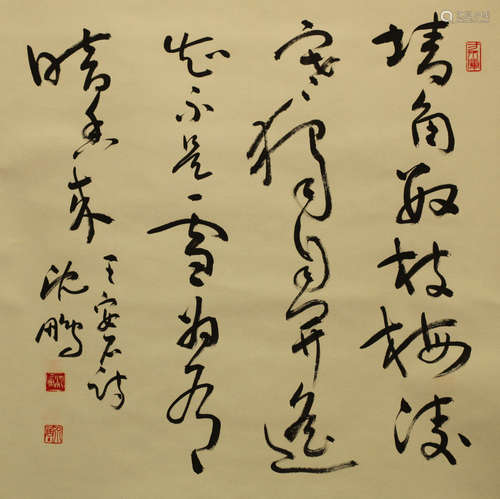 墙角数枝梅凌
寒獨自開遥
知不是雪为有
暗香来
王安石诗
沈鹏